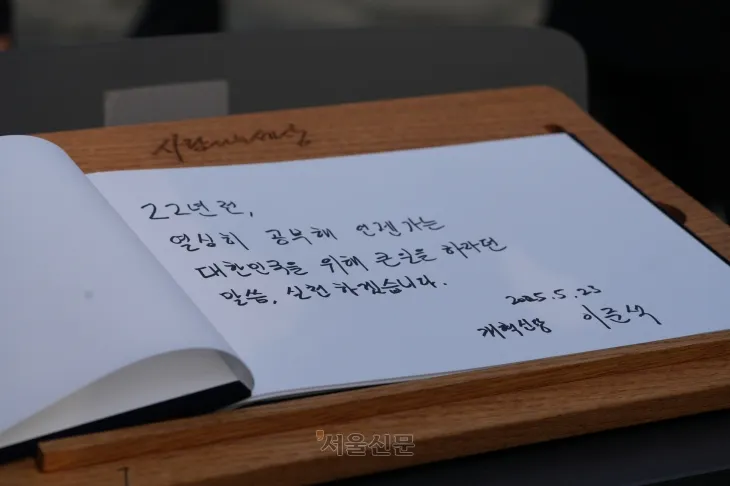 사람사는세상
22년 전,
열심히 공부해 언젠가는
대한민국을 위해 큰일을 하라던
말씀, 실천하겠습니다.
2025.5.23
개혁신당 이준석
서울신문